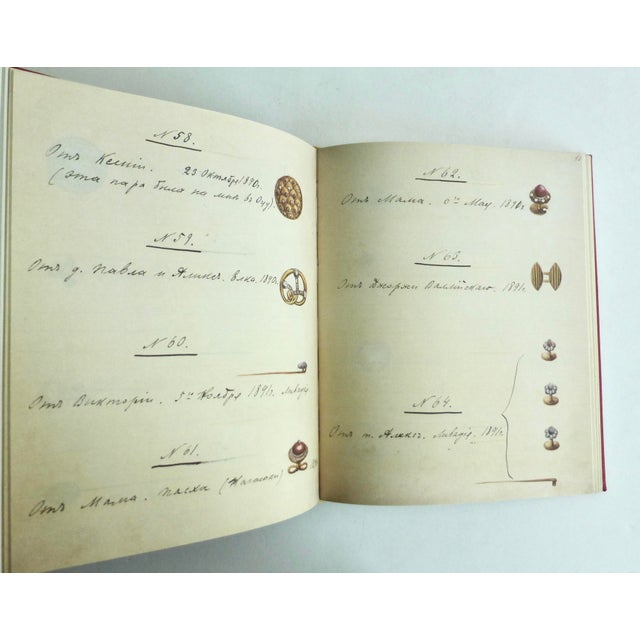 N 58.
Отъ Ксеніи. 23 Октября 1890г.
(эта пара была на мнѣ въ Оцу).
N 59.
Отъ д. Павла и Аликсъ. Елка. 1890г.
N 60.
Отъ Викторіи. 5го Ноября 1891г. Ливадія
N 61.
Отъ Мама. Пасха (Нагасаки)
N 62.
Отъ Мама. 6го Мая. 1891г.
N 63.
Отъ Джоржи Валлійскаго. 1891г.
N 64.
Отъ т. Аликсъ. Ливадія. 1891г.